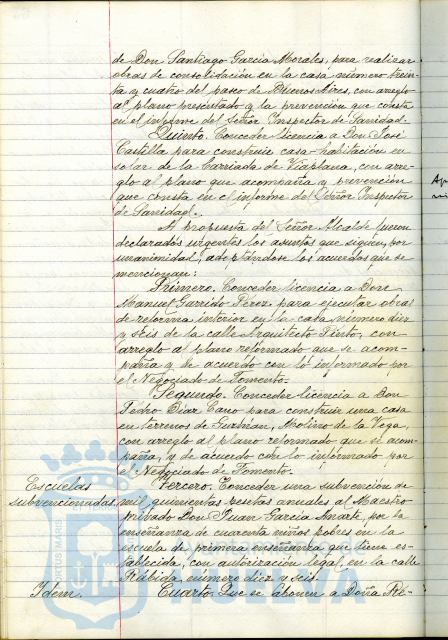 de Don Santiago García Morales, para realizar
obras de consolidación en la casa número trein-
ta y cuatro del paseo de Buenos Aires, con arreglo
al plano presentado y la prevención que consta
en el informe del Señor Inspector de Sanidad.
Quinto. Conceder licencia a Don José
Castilla para construir casa-habitación en
solar de la Barriada de Viaplana, con arre-
glo al plano que acompaña y prevención
que consta en el informe del Señor Inspector
de Sanidad.
A propuesta del Señor Alcalde fueron
declarados urgentes los asuntos que siguen, por
unanimidad, adoptándose los acuerdos que se
mencionan:
Primero. Conceder licencia a Don
Manuel Garrido Perez para ejecutar obras
de reforma interior en la casa número diez
y seis de la calle Arquitecto Pinto, con
arreglo al plano reformado que se acom-
paña y de acuerdo con lo informado por
el Negociado de Fomento.
Segundo. Conceder licencia a Don
Pedro Diaz Cano para construir una casa
en terrenos de Guzmán, Molino de la Vega,
con arreglo al plano reformado que se acom-
paña, y de acuerdo con lo informado por
el Negociado de Fomento.
Escuelas
subvencionadas.
Tercero. Conceder una subvención de
mil quinientas pesetas anuales al Maestro
privado Don Juan Garcia por la
enseñanza de cuarenta niños pobres en la
escuela de primera enseñanza que tiene es-
tablecida, con autorización legal, en la calle
Rábida, número diez y seis.
Idem.
Cuarto. Que se abonen a Doña
HUELVA